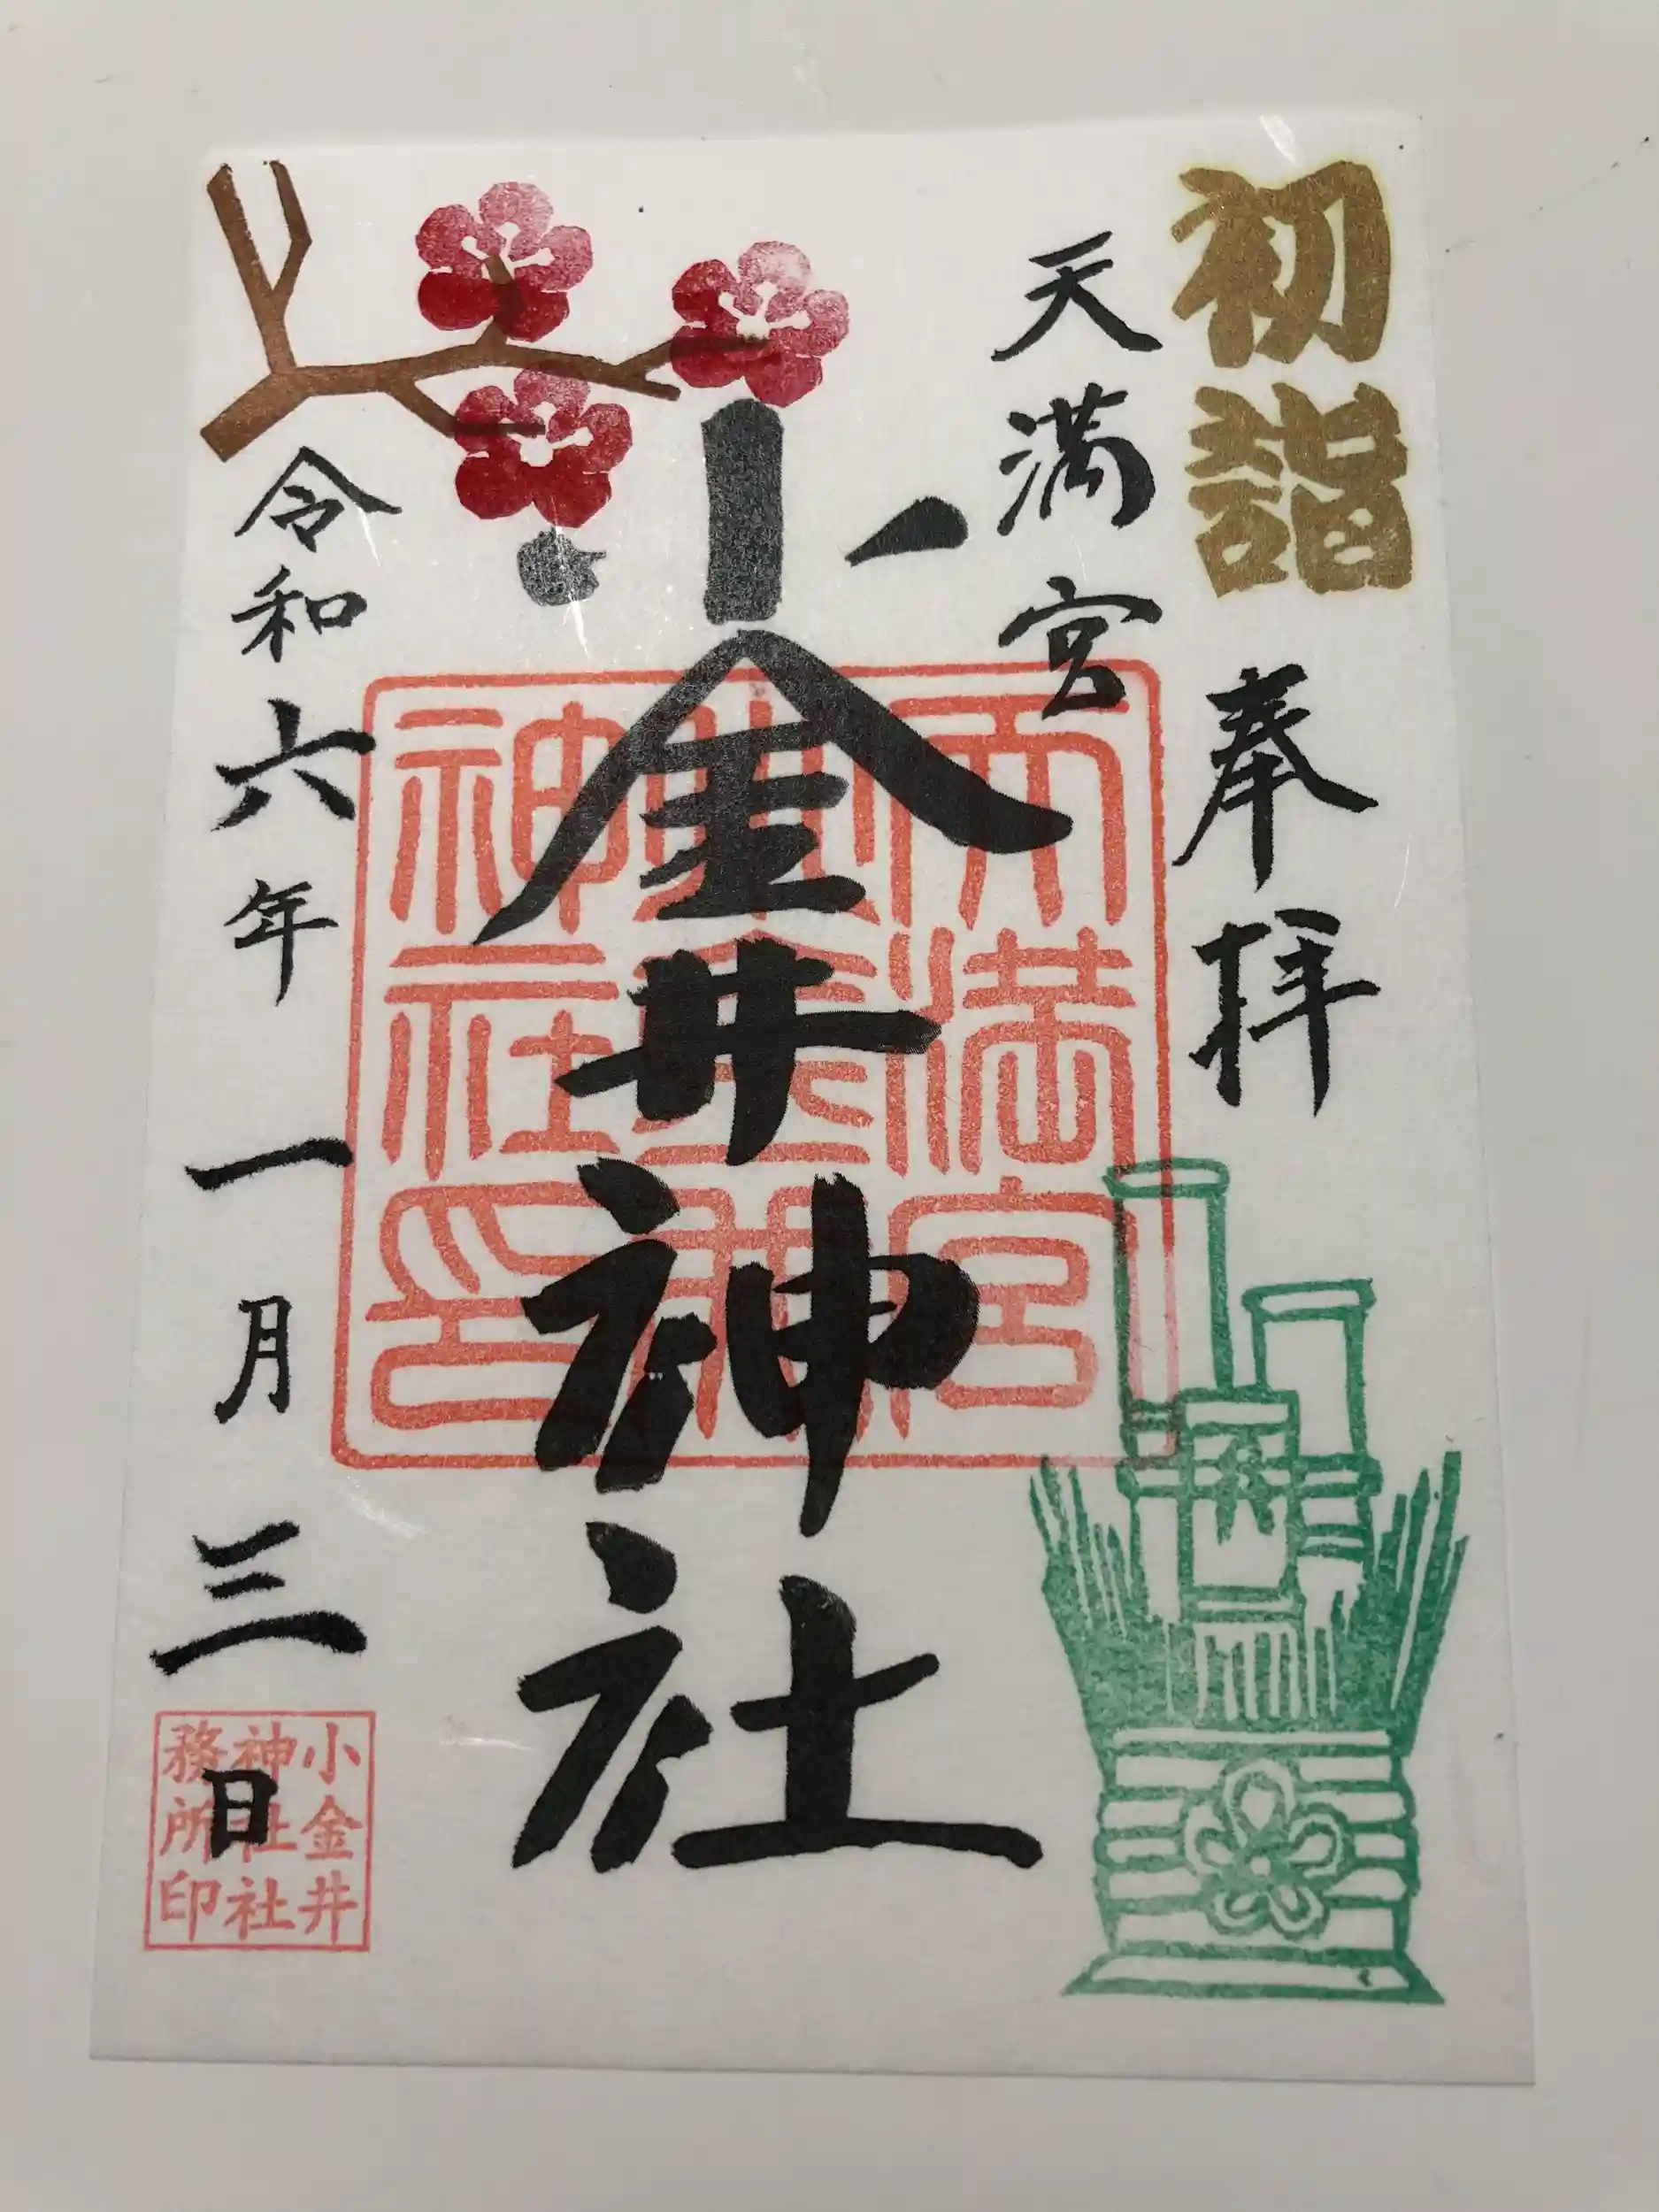 初詣
奉拝
天満宮
小金井神社
令和六年一月三日
天満宮
神社印
小金井
神社社
務所印